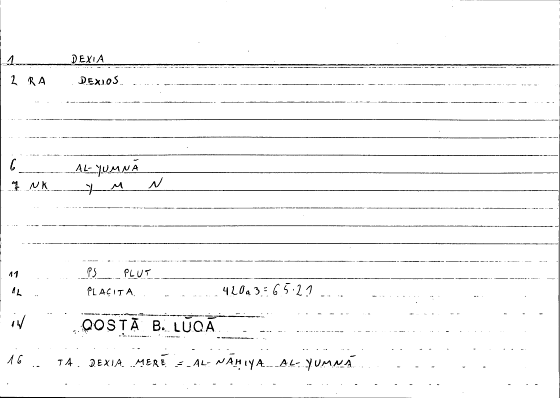 1 DEXIA
2 RA DEXIOS
6 AL-YUMNĀ
7 NK Y M N
11 PS PLUT
12 PLACITA 420a3=65.21
14 QOSTĀ B. LŪQĀ
16 TA DEXIA MERĒ = AL-NĀḤIYA AL-YUMNĀ